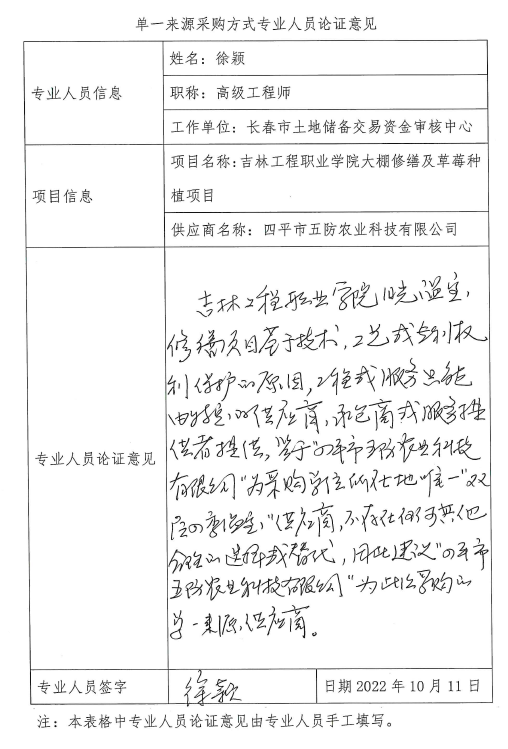 单一来源采购方式专业人员论证意见
专业人员信息
姓名：徐颖
职称：高级工程师
工作单位：长春市土地储备交易资金审核中心
项目信息
项目名称：吉林工程职业学院大棚修缮及草莓种
植项目
供应商名称：四平市五防农业科技有限公司
专业人员论证意见
吉林工程职业学院日光温室，
修缮项目基于技术，工艺或专利权
利保护的原因，工程或服务只能
由特定的供应商，承包商或服务提
供者提供，鉴于"四平市五防农业科技
有限公司"为采购单位所在地"唯一"双
层四季温室"供应商，不存在任何其他
合理的选择或替代，因此建议"四平市
五防农业科技有限公司"为此次采购的
单一来源供应商。
专业人员签字
徐颖
日期 2022 年 10 月 11 日
注：本表格中专业人员论证意见由专业人员手工填写。